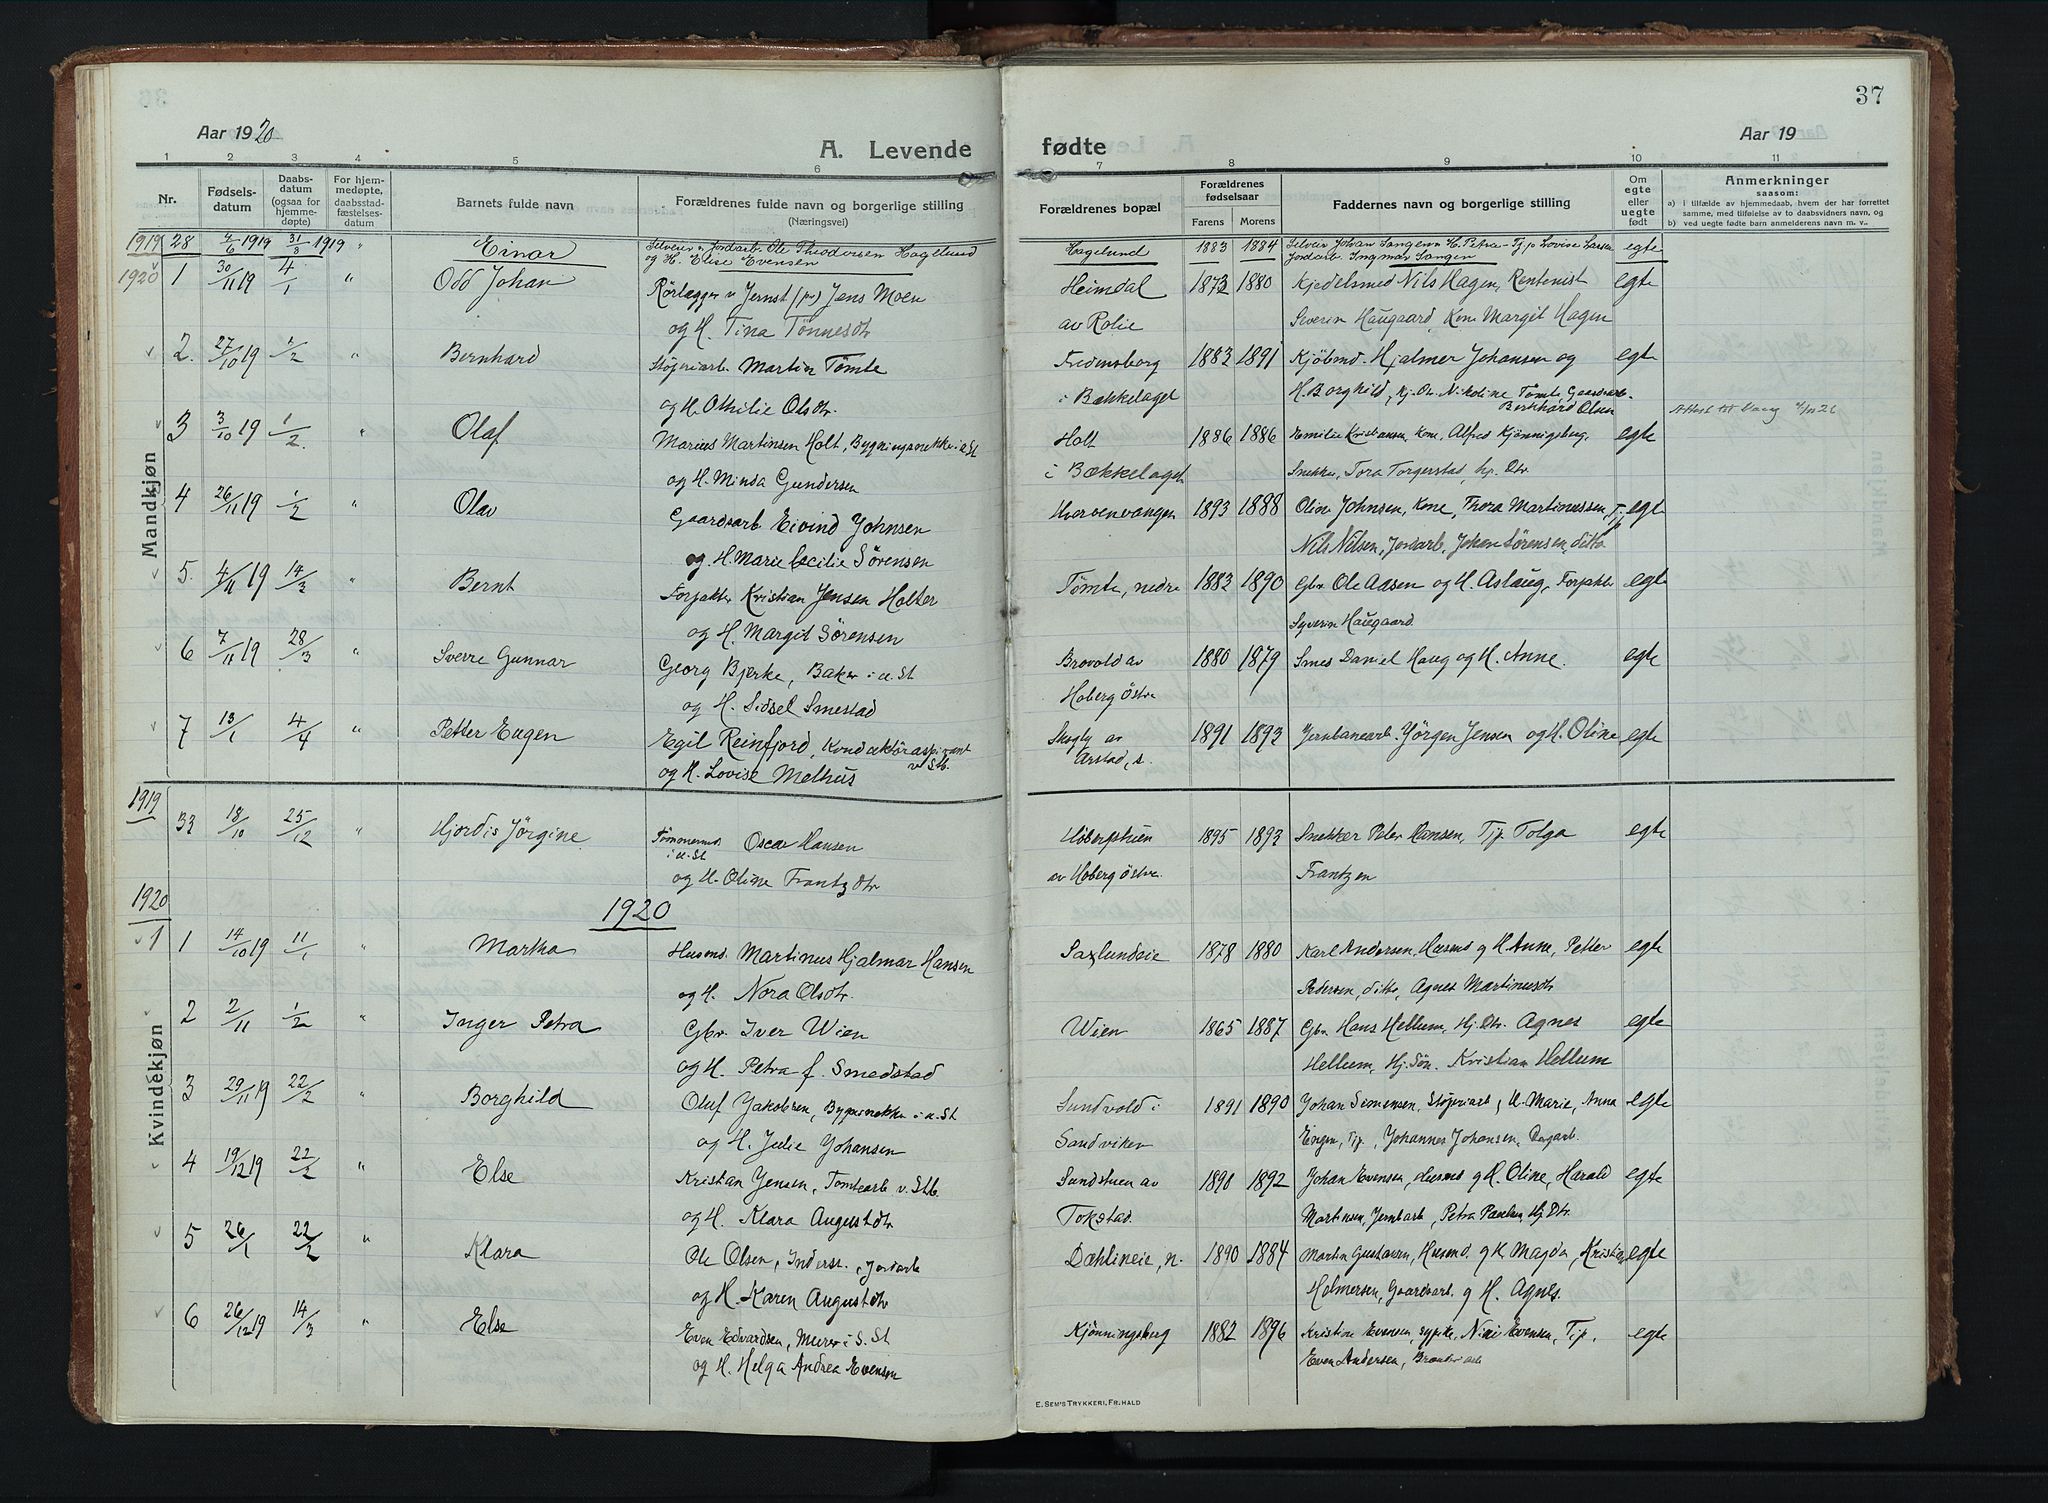 37
Aar 1920
A. Levende
fødte
Aar 19
1 2 3 4 5 6 7 8 9 10 11
Nr.
Fødsels-
datum
Daabs-
datum
(ogsaa for
hjemme-
døpte)
For hjem-
medøpte,
daabsstad-
fæstelses-
datum
Barnets fulde navn
Forældrenes fulde navn og borgerlige stilling
(Næringsvei)
Forældrenes bopæl
Forældrenes
fødselsaar
Farens Morens
Faddernes navn og borgerlige stilling
Om
egte
eller
uegte
født
Anmerkninger
saasom:
a) i tilfælde av hjemmedaab, hvem der har forrettet
samme, med tilføielse av to daabsvidners navn, og
b) ved uegte fødte barn anmelderens navn m. v..
Mandkjøn
1919 28 4/6 1919 31/8 1919 " Einar Jordarb. Ole Theodorsen Hagelund Hagelund 1883 1884 Johan Sangen og H. Petra - Tj.p Lovise Larsen egte
og H. Elise Evensen Jordarb. Ingmar Sangen
1920 1 30/11 19 4/1 " Odd Johan Rørlægger v Jernst (pr) Jens Moen Heimdal 1873 1880 Kjedelsmed Nils Hagen, Rentenist egte
og H. Tina Tønnesdtr av Rolie Severin Haugaard, Kone Margit Hagen
2. 27/10 19 1/2 " Bernhard Støperiarb. Martin Tømte Fredensborg 1883 1891 Kjøbmd. Hjalmer Johansen og egte
og H. Othilie Olsdtr. i Bækkelaget H. Borghild, Hj. Dtr. Nikoline Tømte, Gaardsarb.
Bernhard Olsen
3 3/10 19 1/2. " Olaf Marius Martinsen Holt, Bygningssnekker i u. St Holt 1886 1886 Emilie Kristiansen, Kone, Alfred Kjønnigsberg, egte
og H. Minda Gundersen i Bækkelaget Snekker, Tora Torgerstad, hj. Dtr.
4 26/11 19 1/2 " Olav Gaardsarb Eivind Johnsen Hvervenvangen 1893 1888 Oline Johnsen, Kone, Thora Martinussen, Tjp egte
og H. Marie Cecilie Sørensen Nils Nilsen, Jordarb, Johan Sørensen, ditto
5. 4/11 19 14/3 " Bernt Forpakter Kristian Jensen Holter Tømte, nedre 1883 1890 Gbr Ole Aasen og H. Aslaug, Forpakter egte
og H. Margit Sørensen Severin Haugaard.
6 7/11 19 28/3 " Sverre Gunnar Georg Bjerke, Baker i u. St Brovold av 1880 1879 Smed Daniel Haug og H. Anne. egte
og H. Sidsel Smestad Hoberg Østre
7 13/1 4/4 " Petter Eugen Egil Reinfjord, Konduktøraspirant Skogly av 1891 1893 Jernbanearb. Jørgen Jensen og H. Oline egte
v Stb.
og H. Lovise Melhus Arstad, s.
Kvindekjøn
1919 33 18/10 25/12 " Hjordis Jørgine Tømmermd i u. St Oscar Hansen Hobergstuen 1895 1893 Snekker Peter Hansen, Tjp Tolga egte
og H. Oline Frantzdtr av Hoberg Østre Frantzen
1920
1920
1 1 14/10 19 11/1 " Martha Husmd. Martinus Hjalmar Hansen Saxlundeie 1878 1880 Karl Andersen, Husmd og H Anne, Petter egte
og H. Nora Olsdtr. Pedersen, ditto, Agnes Martinusdtr
2 2/11 1/2 " Inger Petra Gbr. Iver Wien Wien 1865 1887 Gbr. Hans Hellum, Hj. Dtr. Agnes egte
og H. Petra f. Smedstad Hellum, Hj. Søn. Kristian Hellum
3 29/11 19 22/2 " Borghild Oluf Jakobsen, Bygsnekker i u. St Sundvold i 1891 1890 Johan Simensen, Støperiarb, H. Marie, Anna egte
og H. Julie Johansen Sandviken Engen, Tjp, Johannes Johansen, Dagarb.
4 19/12 19 22/2 " Else Kristian Jensen, Tomtearb v. Stb. Sundstuen av 1890 1892 Johan Evensen, Husmd og H. Oline, Harald egte
og H. Klara Augustdtr Tokstad. Martinsen, Jernbarb, Petra Paulsen, Hj. Dtr.
5 26/1 22/2 " Klara Ole Olsen, Inderst, Jordarb Dæhlineie, n. 1890 1884 Martin Gustavsen, Husmd og H Magda, Kristian egte
og H. Karen Augustdtr Holmersen, Gaardsarb. og H. Agnes.
6 26/12 19 14/3 " Else Even Edvardsen, Murer i S. St Kjønningsberg 1882 1896 Kristine Evensen, sypike, Nini Evensen, Tjp, egte
og H. Helga Andrea Evensen Even Andersen,
E. SEM'S TRYKKERI, FR. HALD